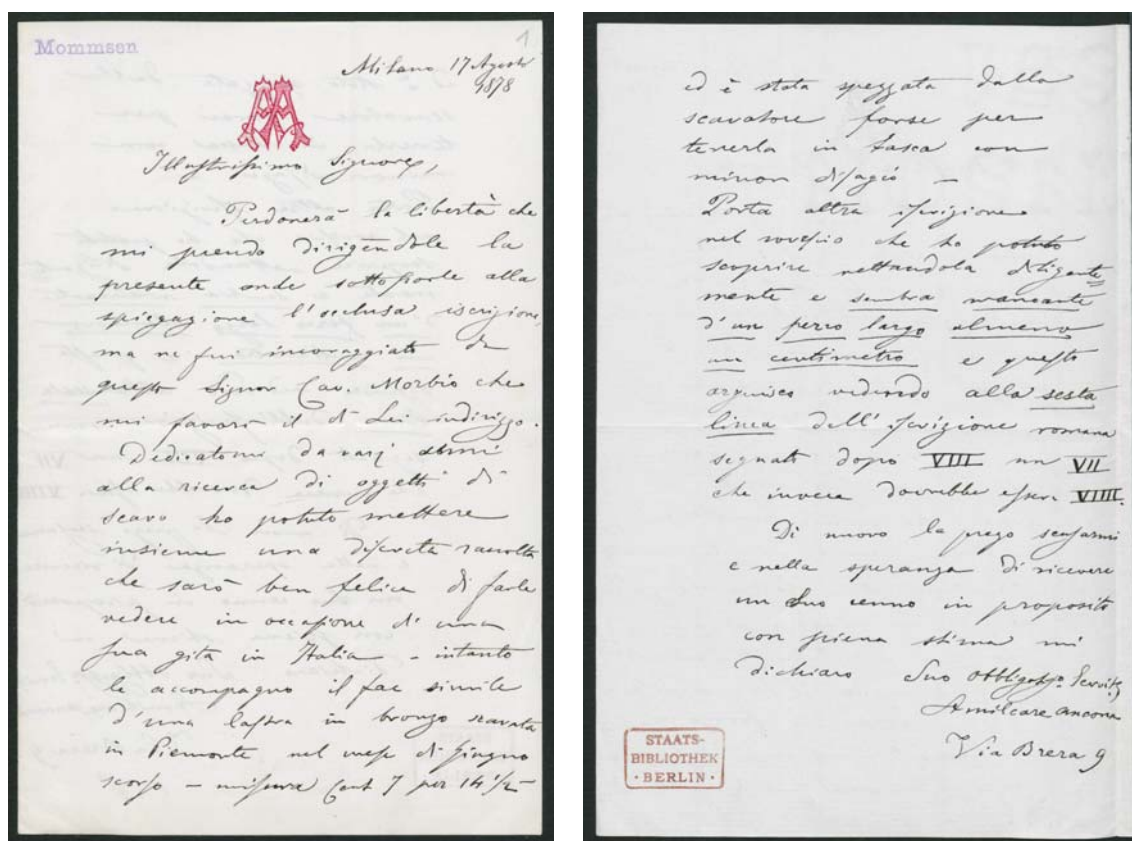 Mommsen
1
Milano 17 Agosto
1878
AA
Illustrissimo Signore,
Perdonerà la libertà che
mi prendo dirigendole la
presente onde sottoporle alla
spiegazione l'acclusa iscrizione,
ma ne fui incoraggiato da
questo Signor Cav. Morbio che
mi favorì il di Lei indirizzo.
Dedicatomi da varj anni
alla ricerca di oggetti di
scavo ho potuto mettere
insieme una discreta raccolta
che sarò ben felice di farle
vedere in occasione di una
sua gita in Italia – intanto
le accompagno il fac simile
d'una lastra in bronzo scavata
in Piemonte nel mese di Giugno
scorso – misura Cent 7 per 14 1/2
ed è stata spezzata dallo
scavatore forse per
tenerla in tasca con
minor disagio –
Porta altra iscrizione
nel rovescio che ho potuto
scoprire nettandola diligente=
mente e sembra mancante
d'un pezzo largo almeno
un centimetro e questo
arguisco vedendo alla sesta
linea dell'iscrizione romana
segnato dopo VIII un VII
che invece dovrebbe essere VIIII.
Di nuovo la prego scusarmi
e nella speranza di ricevere
un Suo cenno in proposito
con piena stima mi
dichiaro Suo obbligatss. Servit.
Amilcare Ancona
Via Brera 9
STAATS-
BIBLIOTHEK
· BERLIN ·